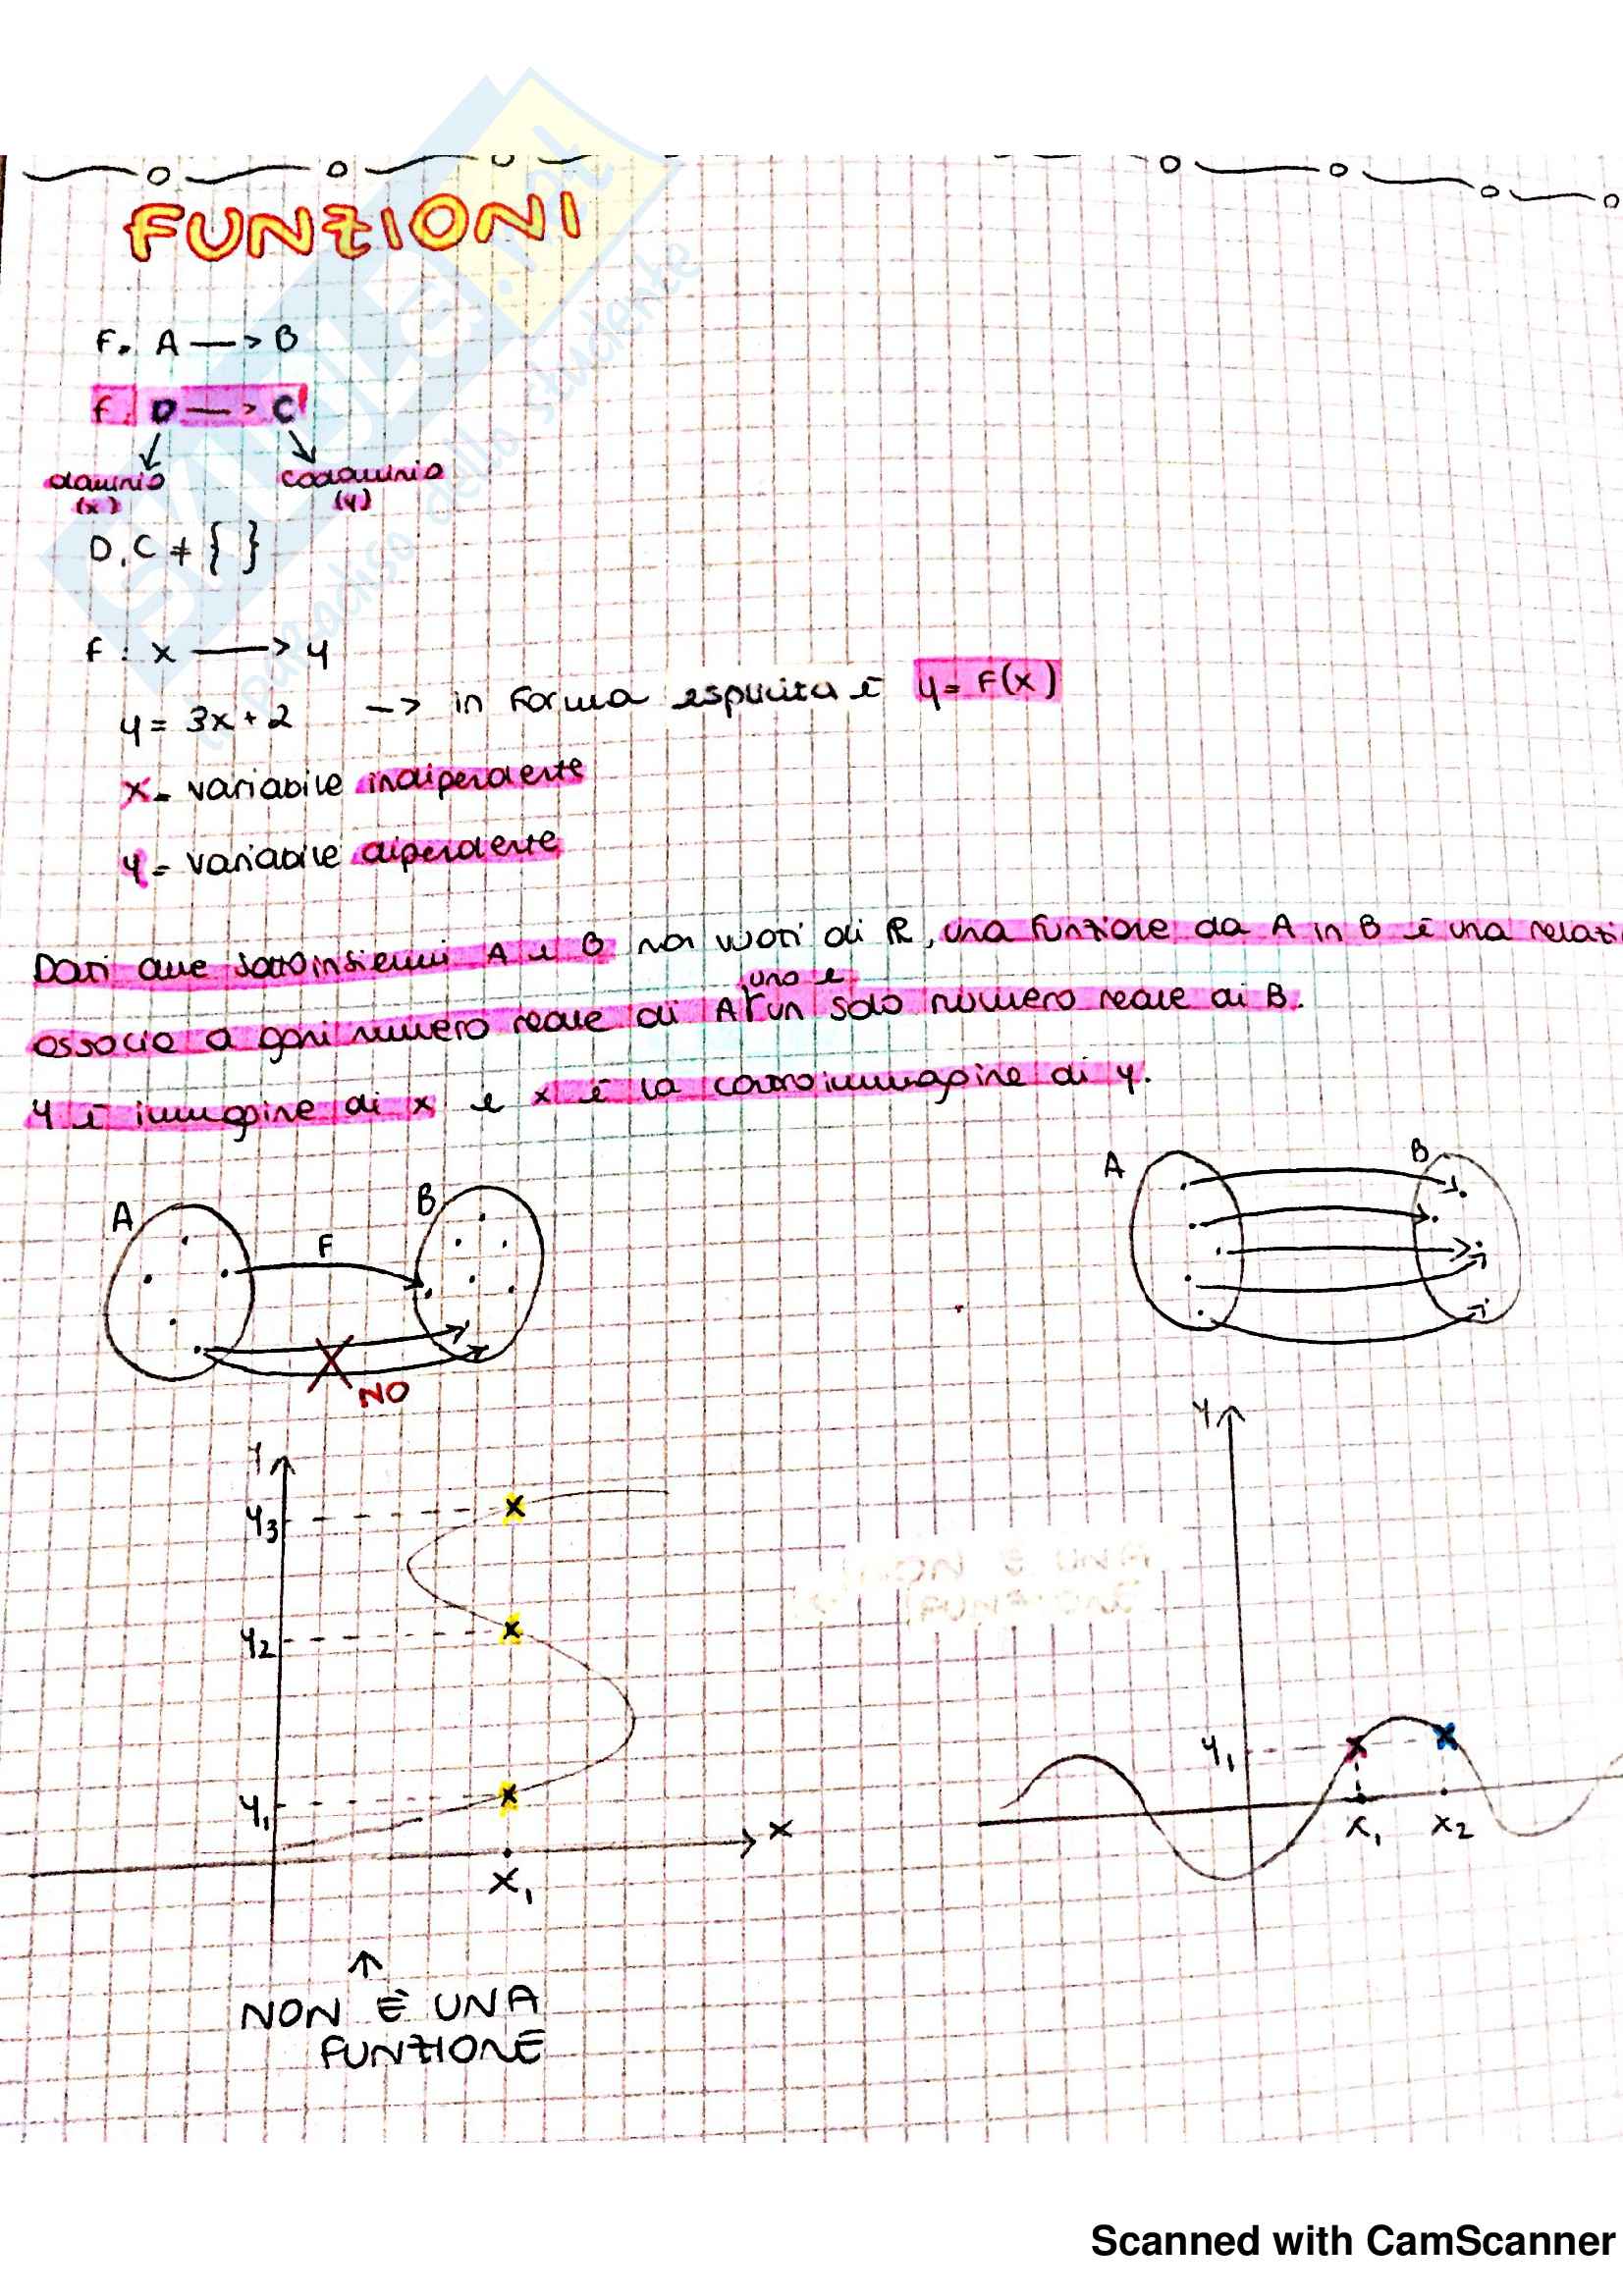 FUNZIONI
F: A —> B
F: D —> C
dominio codominio
(x) (y)
D, C ≠ { }
F: x —> y
y = 3x + 2 —> in forma esplicita è y = F(x)
x = variabile indipendente
y = variabile dipendente
Dati due sottoinsiemi A e B non vuoti di R, una funzione da A in B è una relazi
uno e
associa a ogni numero reale di A un solo numero reale di B.
y è immagine di x e x è la controimmagine di y.
A B
A F B
NO
y
y
y3
y2
y1
y1
x
x1 x2
x1
↑
NON È UNA
FUNZIONE
SKUOLA.net
il paradiso dello studente
Scanned with CamScanner